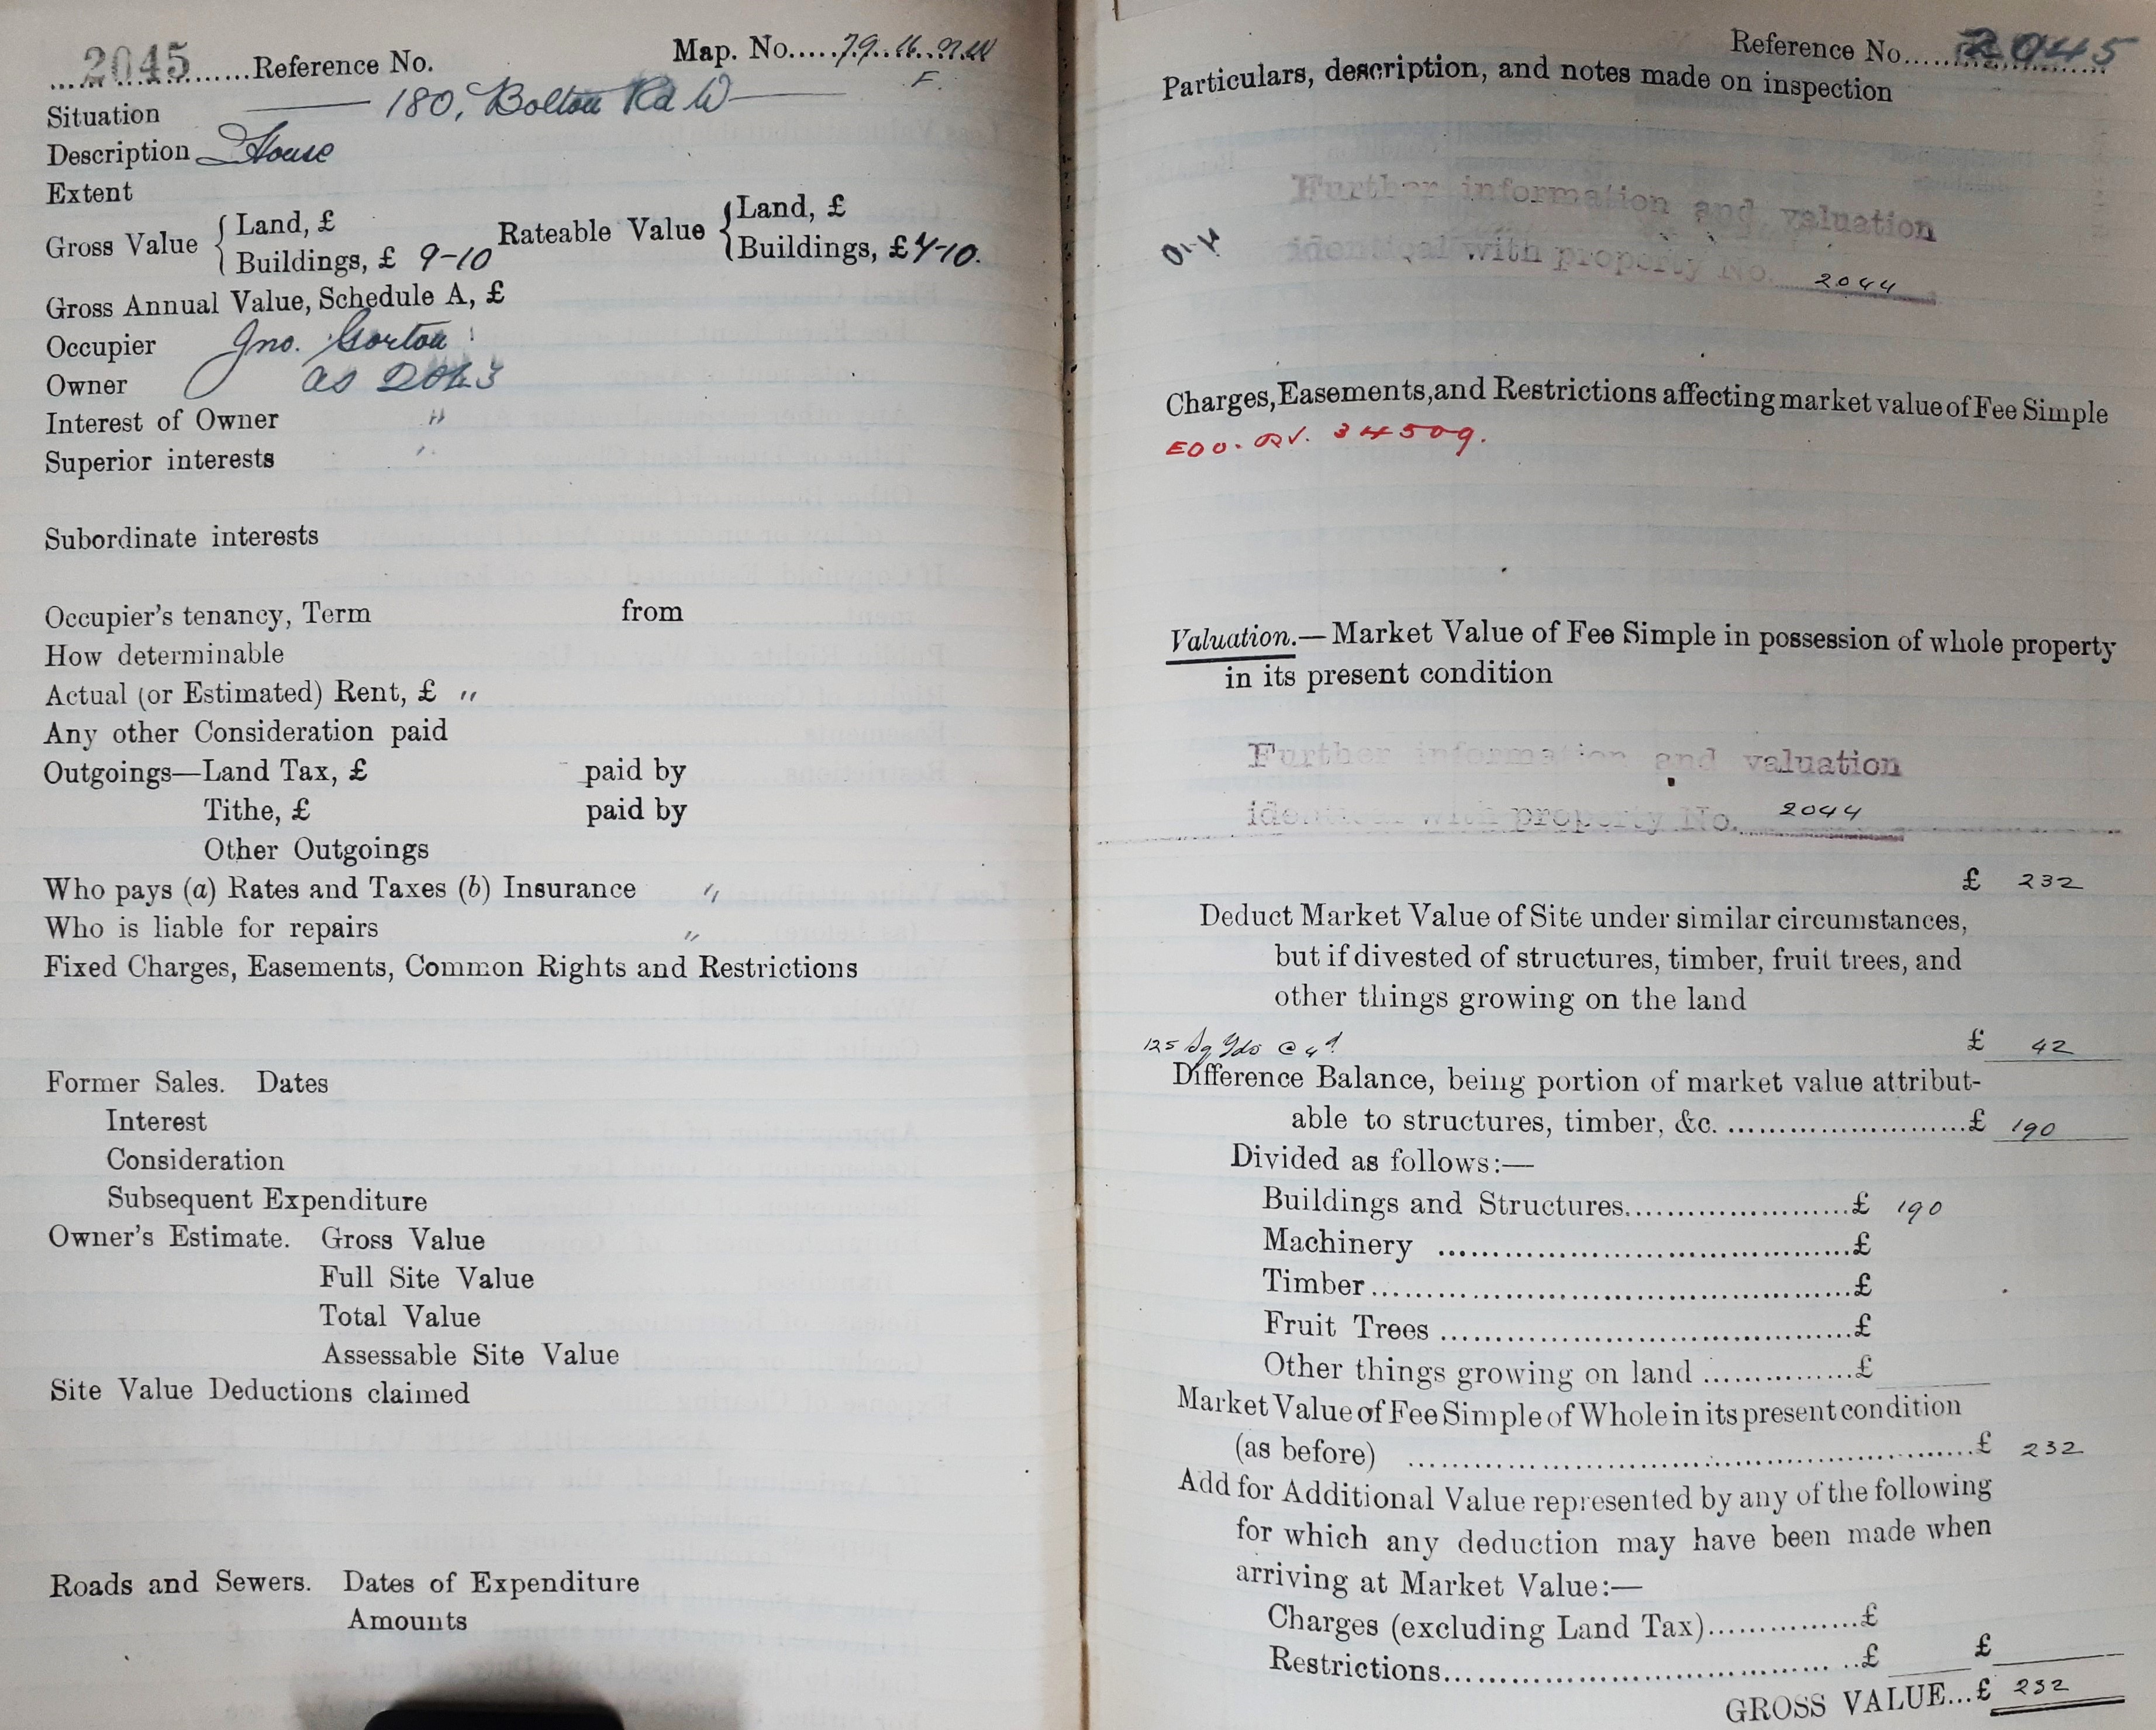 2045 Reference No. Map. No. 79.16. N.W
F.
Situation 180, Bolton Rd W
Description House
Extent
Gross Value { Land, £ Rateable Value { Land, £
Buildings, £ 9-10 Buildings, £ 7-10.
Gross Annual Value, Schedule A, £
Occupier Jno. Gorton
Owner as 2043
Interest of Owner "
Superior interests "
Subordinate interests
Occupier's tenancy, Term from
How determinable
Actual (or Estimated) Rent, £ "
Any other Consideration paid
Outgoings—Land Tax, £ paid by
Tithe, £ paid by
Other Outgoings
Who pays (a) Rates and Taxes (b) Insurance "
Who is liable for repairs "
Fixed Charges, Easements, Common Rights and Restrictions
Former Sales. Dates
Interest
Consideration
Subsequent Expenditure
Owner's Estimate. Gross Value
Full Site Value
Total Value
Assessable Site Value
Site Value Deductions claimed
Roads and Sewers. Dates of Expenditure
Amounts
Reference No. 2045
Particulars, description, and notes made on inspection
Further information and valuation
identical with property No. 2044
Charges, Easements, and Restrictions affecting market value of Fee Simple
34509.
Valuation.—Market Value of Fee Simple in possession of whole property
in its present condition
Further information and valuation
identical with property No. 2044
£ 232
Deduct Market Value of Site under similar circumstances,
but if divested of structures, timber, fruit trees, and
other things growing on the land
125 Sq Yds @ 4d £ 42
Difference Balance, being portion of market value attribut-
able to structures, timber, &c. £ 190
Divided as follows:—
Buildings and Structures £ 190
Machinery £
Timber £
Fruit Trees £
Other things growing on land £
Market Value of Fee Simple of Whole in its present condition
(as before) £ 232
Add for Additional Value represented by any of the following
for which any deduction may have been made when
arriving at Market Value:—
Charges (excluding Land Tax) £
Restrictions £ £
GROSS VALUE...£ 232